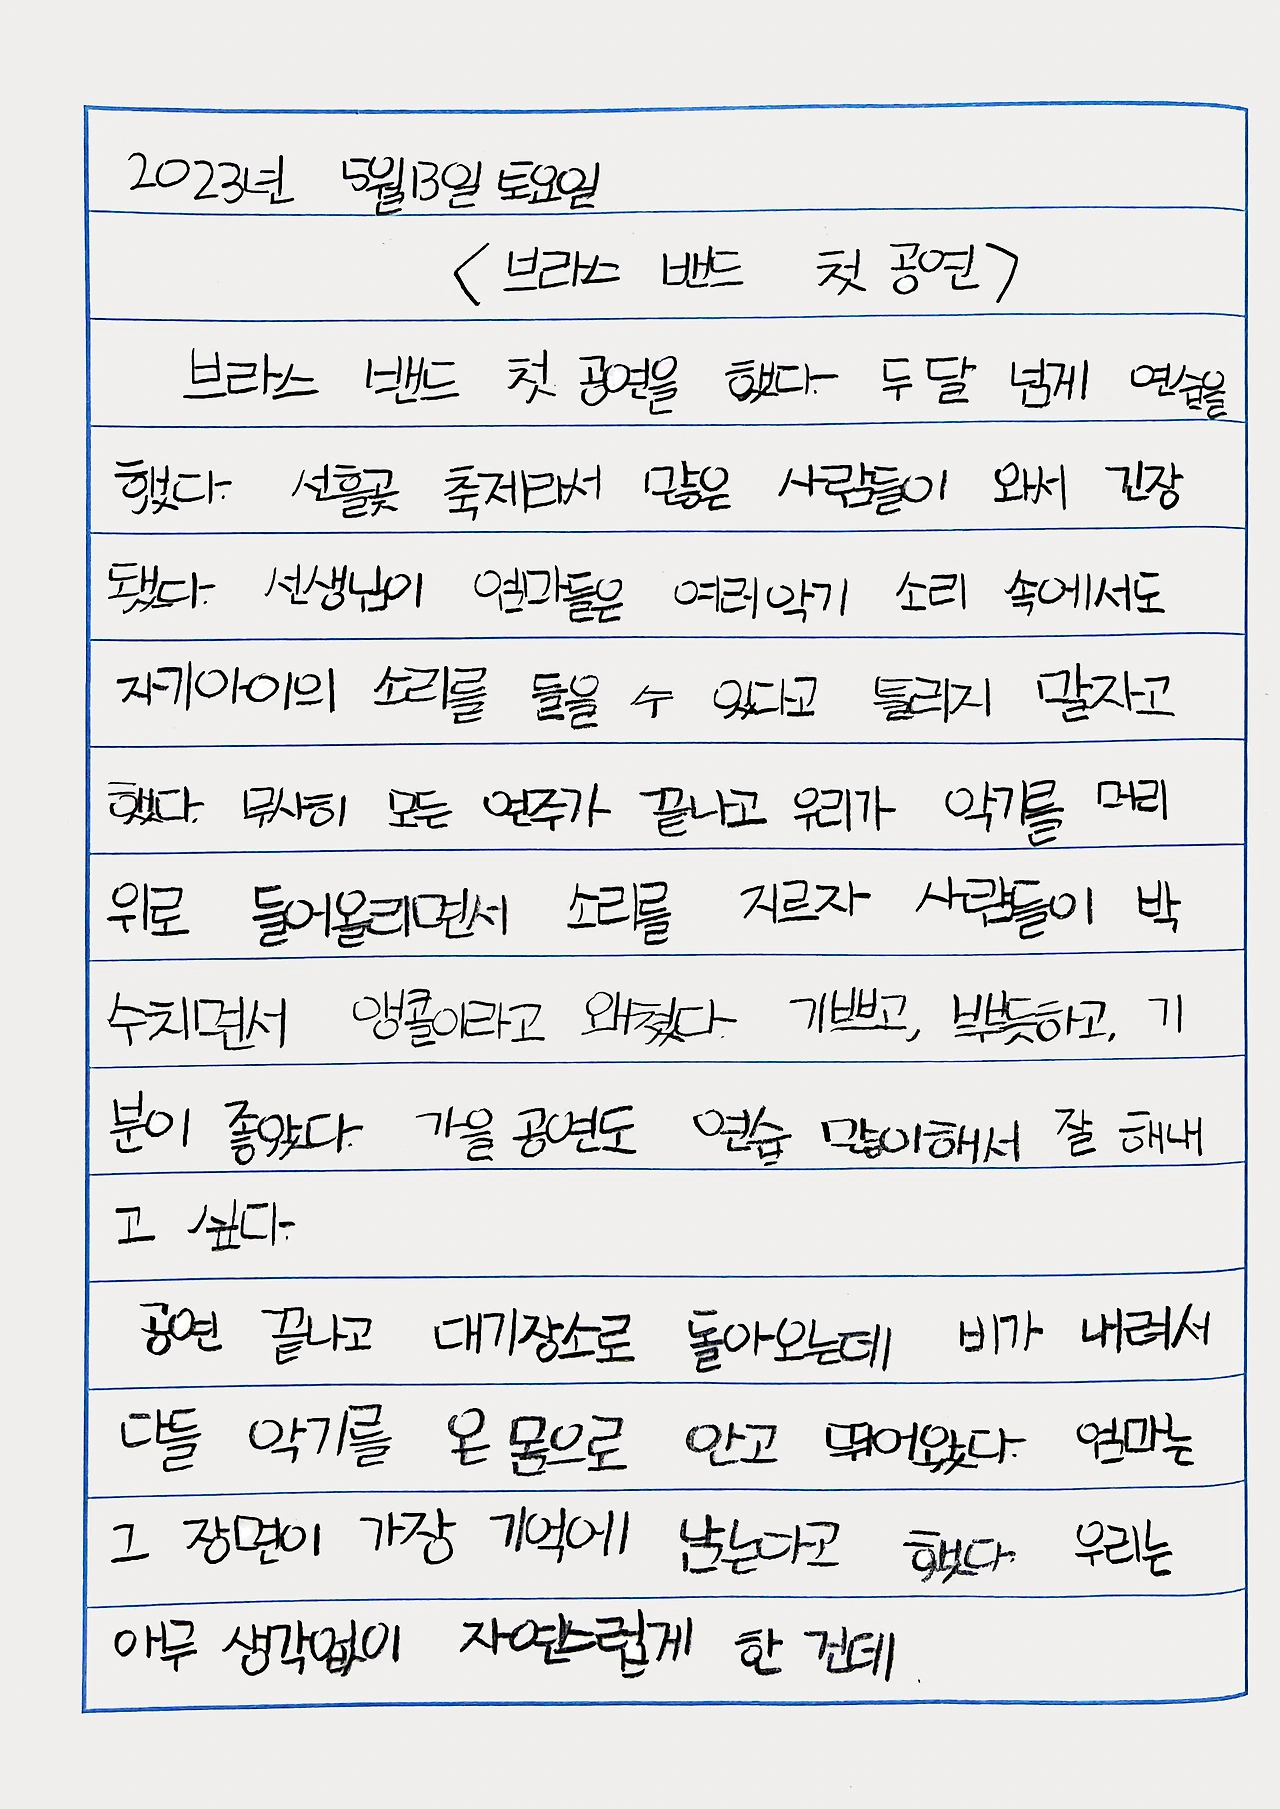 2023년 5월13일 토요일
<브라스 밴드 첫 공연>
브라스 밴드 첫 공연을 했다. 두 달 넘게 연습을
했다. 선흘곶 축제라서 많은 사람들이 와서 긴장
됐다. 선생님이 엄마들은 여러악기 소리 속에서도
자기아이의 소리를 들을 수 있다고 틀리지 말자고
했다. 무사히 모든 연주가 끝나고 우리가 악기를 머리
위로 들어올리면서 소리를 지르자 사람들이 박
수치면서 앵콜이라고 외쳤다. 기쁘고, 뿌듯하고, 기
분이 좋았다. 가을 공연도 연습 많이해서 잘 해내
고 싶다.
공연 끝나고 대기장소로 돌아오는데 비가 내려서
다들 악기를 온 몸으로 안고 뛰어왔다. 엄마는
그 장면이 가장 기억에 남는다고 했다. 우리는
아무 생각없이 자연스럽게 한 건데